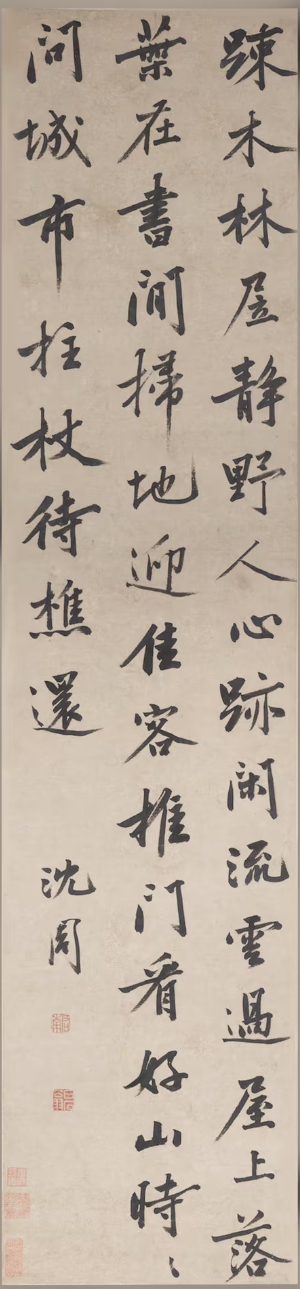 疎木林居静野人心跡閑流雲過屋上落
葉在書間掃地迎佳客推门看好山時〻
问城市拄杖待樵還
沈周